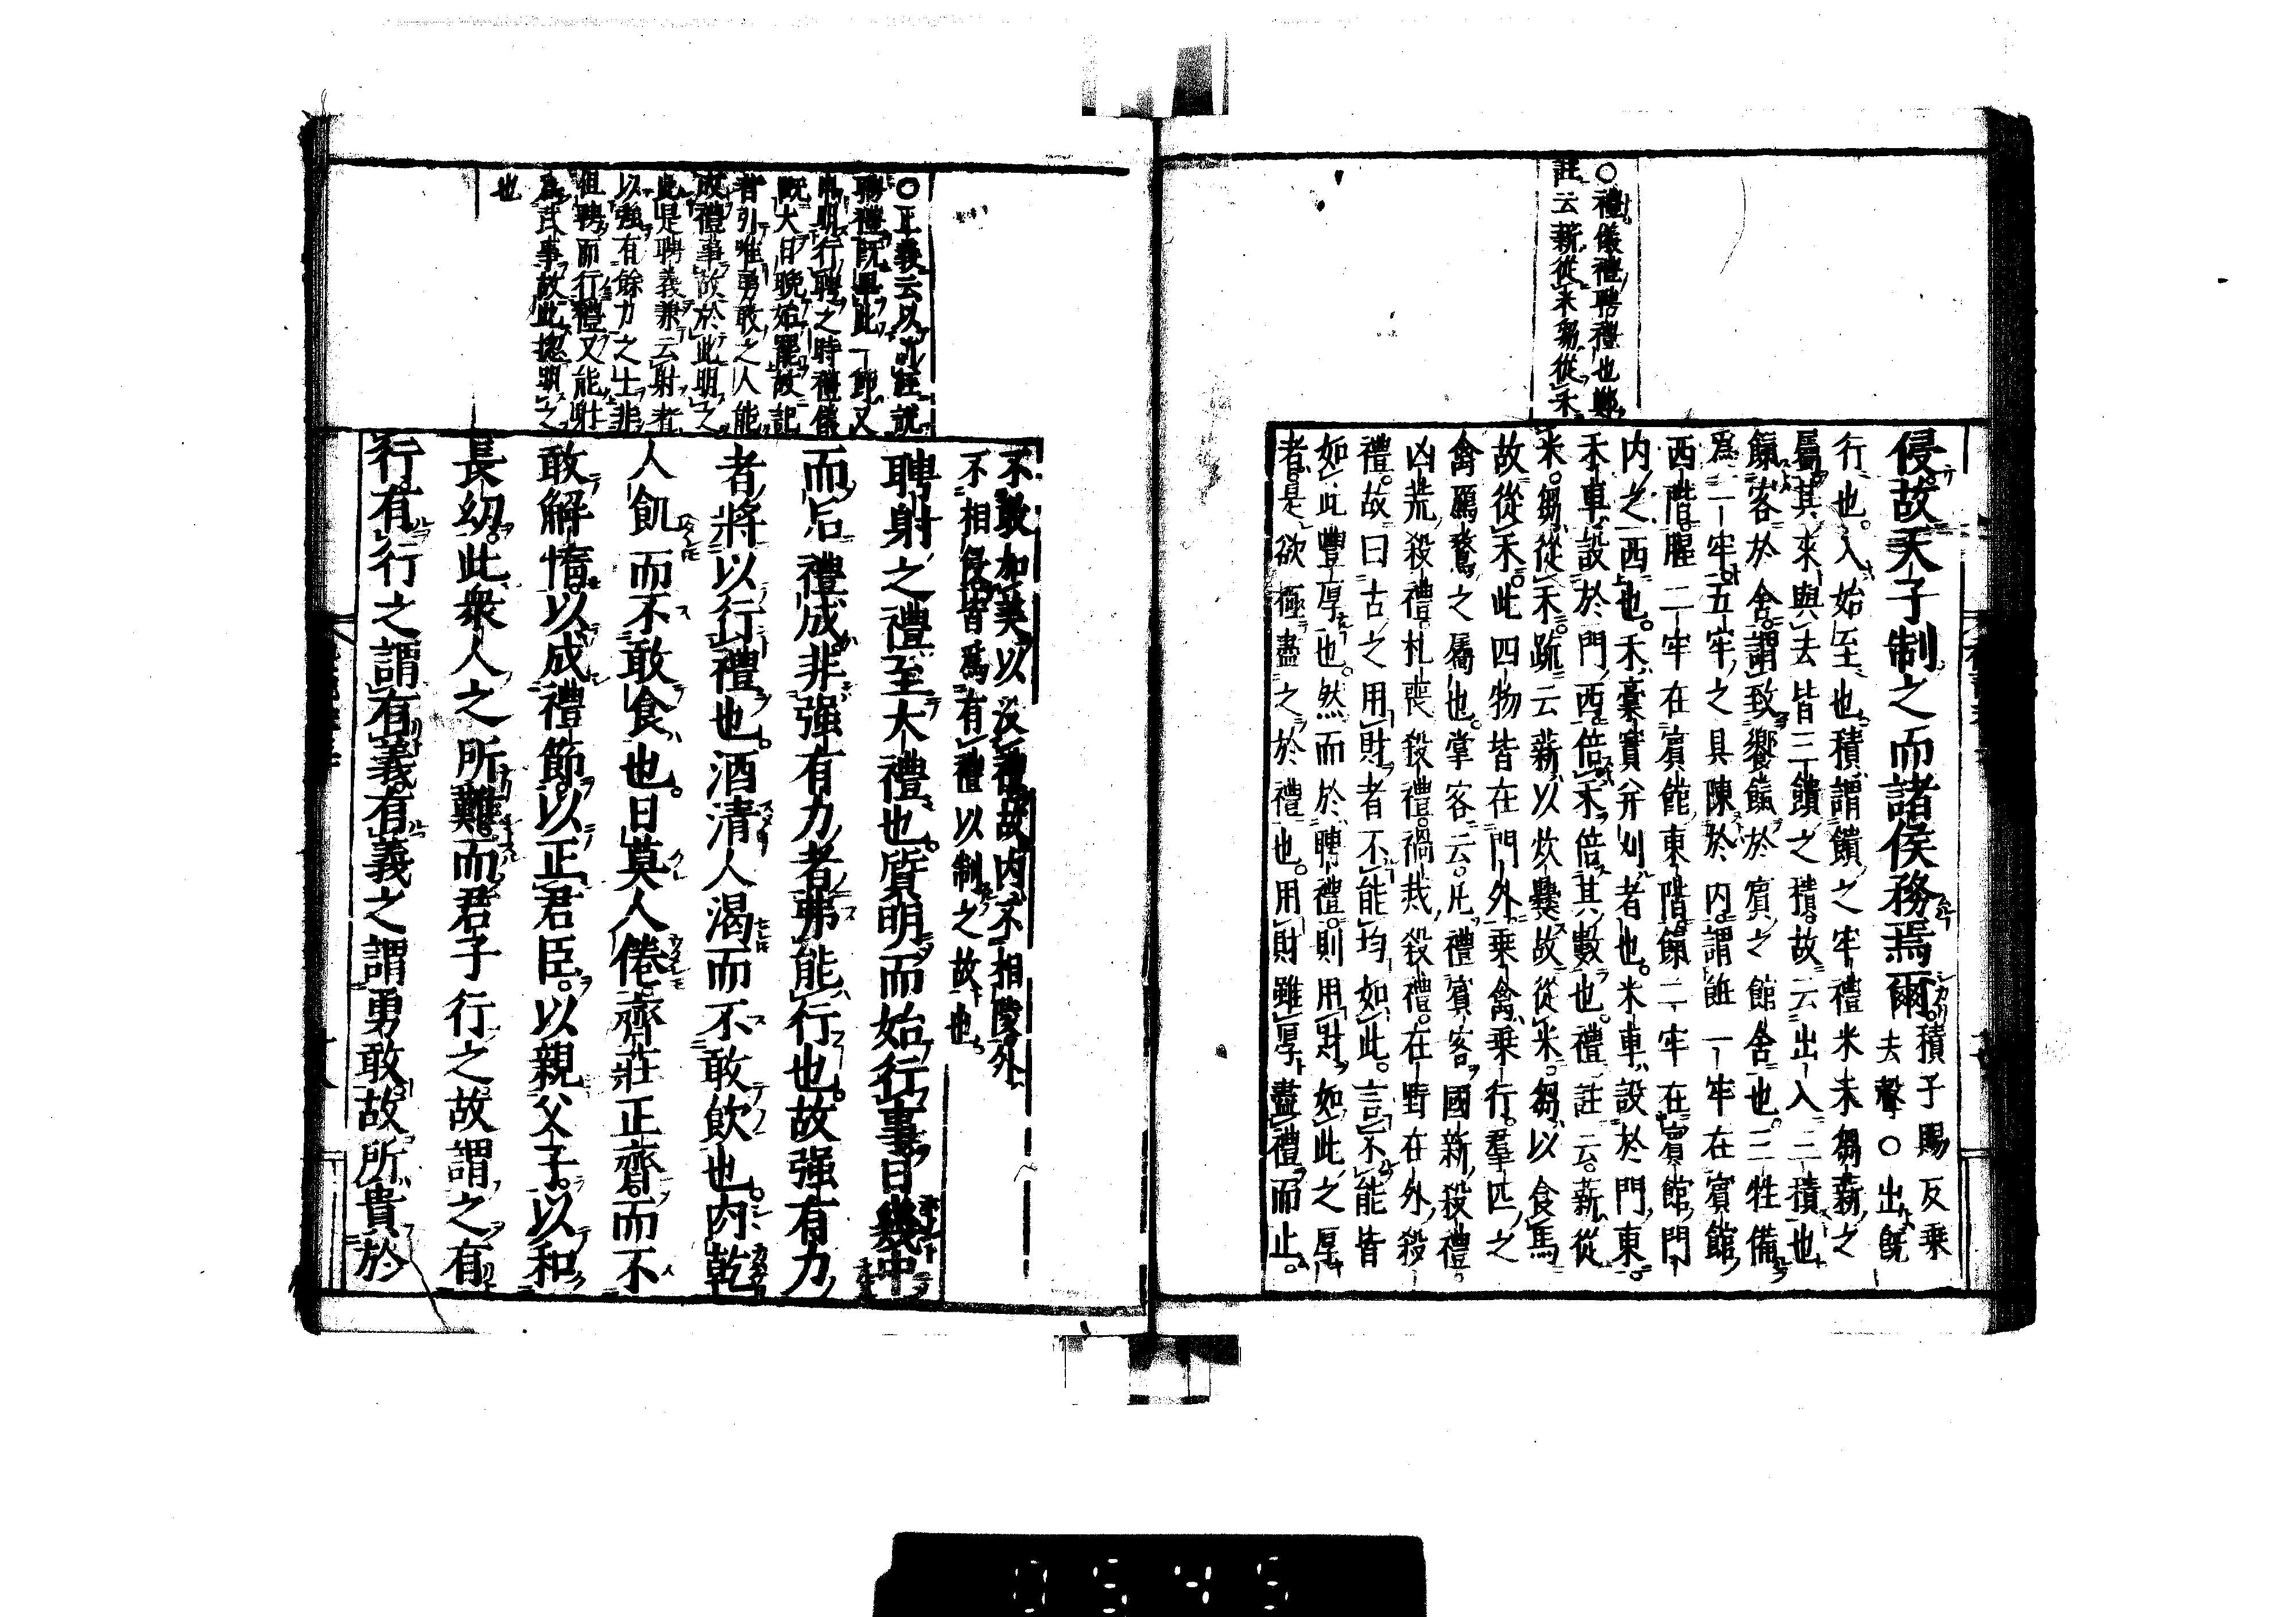 ○禮儀禮聘禮也鄭
註云薪從米芻從禾
侵故天子制之而諸侯務焉爾積子賜反乗
去聲○出既
行也入始至也積謂饋之牢禮米禾芻薪之
屬其來與去皆三饋之積故云出入三積也
餼客於舍謂致饔餼於賓之館舍也三牲備
爲一牢五牢之具陳於内謂飪一牢在賓館
西階腥二牢在賓館東階餼二牢在賓館門
内之西也禾藁實并刈者也米車設於門東
禾車設於門西倍禾倍其數也禮註云薪從
米芻從禾疏云薪以炊爨故從米芻以食馬
故從禾此四物皆在門外乗禽乗行羣匹之
禽鴈鶩之屬也掌客云凡禮賓客國新殺禮
凶荒殺禮札喪殺禮禍烖殺禮在野在外殺
禮故曰古之用財者不能均如此言不能皆
如此豐厚也然而於聘禮則用財如此之厚
者是欲極盡之於禮也用財雖厚盡禮而止
○正義云以前經說
聘禮既畢此一節又
申明行聘之時禮儀
既大日晚始罷故記
者引唯勇敢之人能
成禮事故於此明之
此是聘義兼云射者
以強有餘力之士非
但聘而行禮又能射
爲武事故此揔明之
也
不敢加美以没禮故内不相陵外
不相侵皆爲有禮以制之故也
聘射之禮至大禮也質明而始行事日幾中
而后禮成非强有力者弗能行也故强有力
者將以行禮也酒清人渴而不敢飲也肉乾
人飢而不敢食也日莫人倦齊莊正齊而不
敢解惰以成禮節以正君臣以親父子以和
長幼此衆人之所難而君子行之故謂之有
行有行之謂有義有義之謂勇敢故所貴於
0545